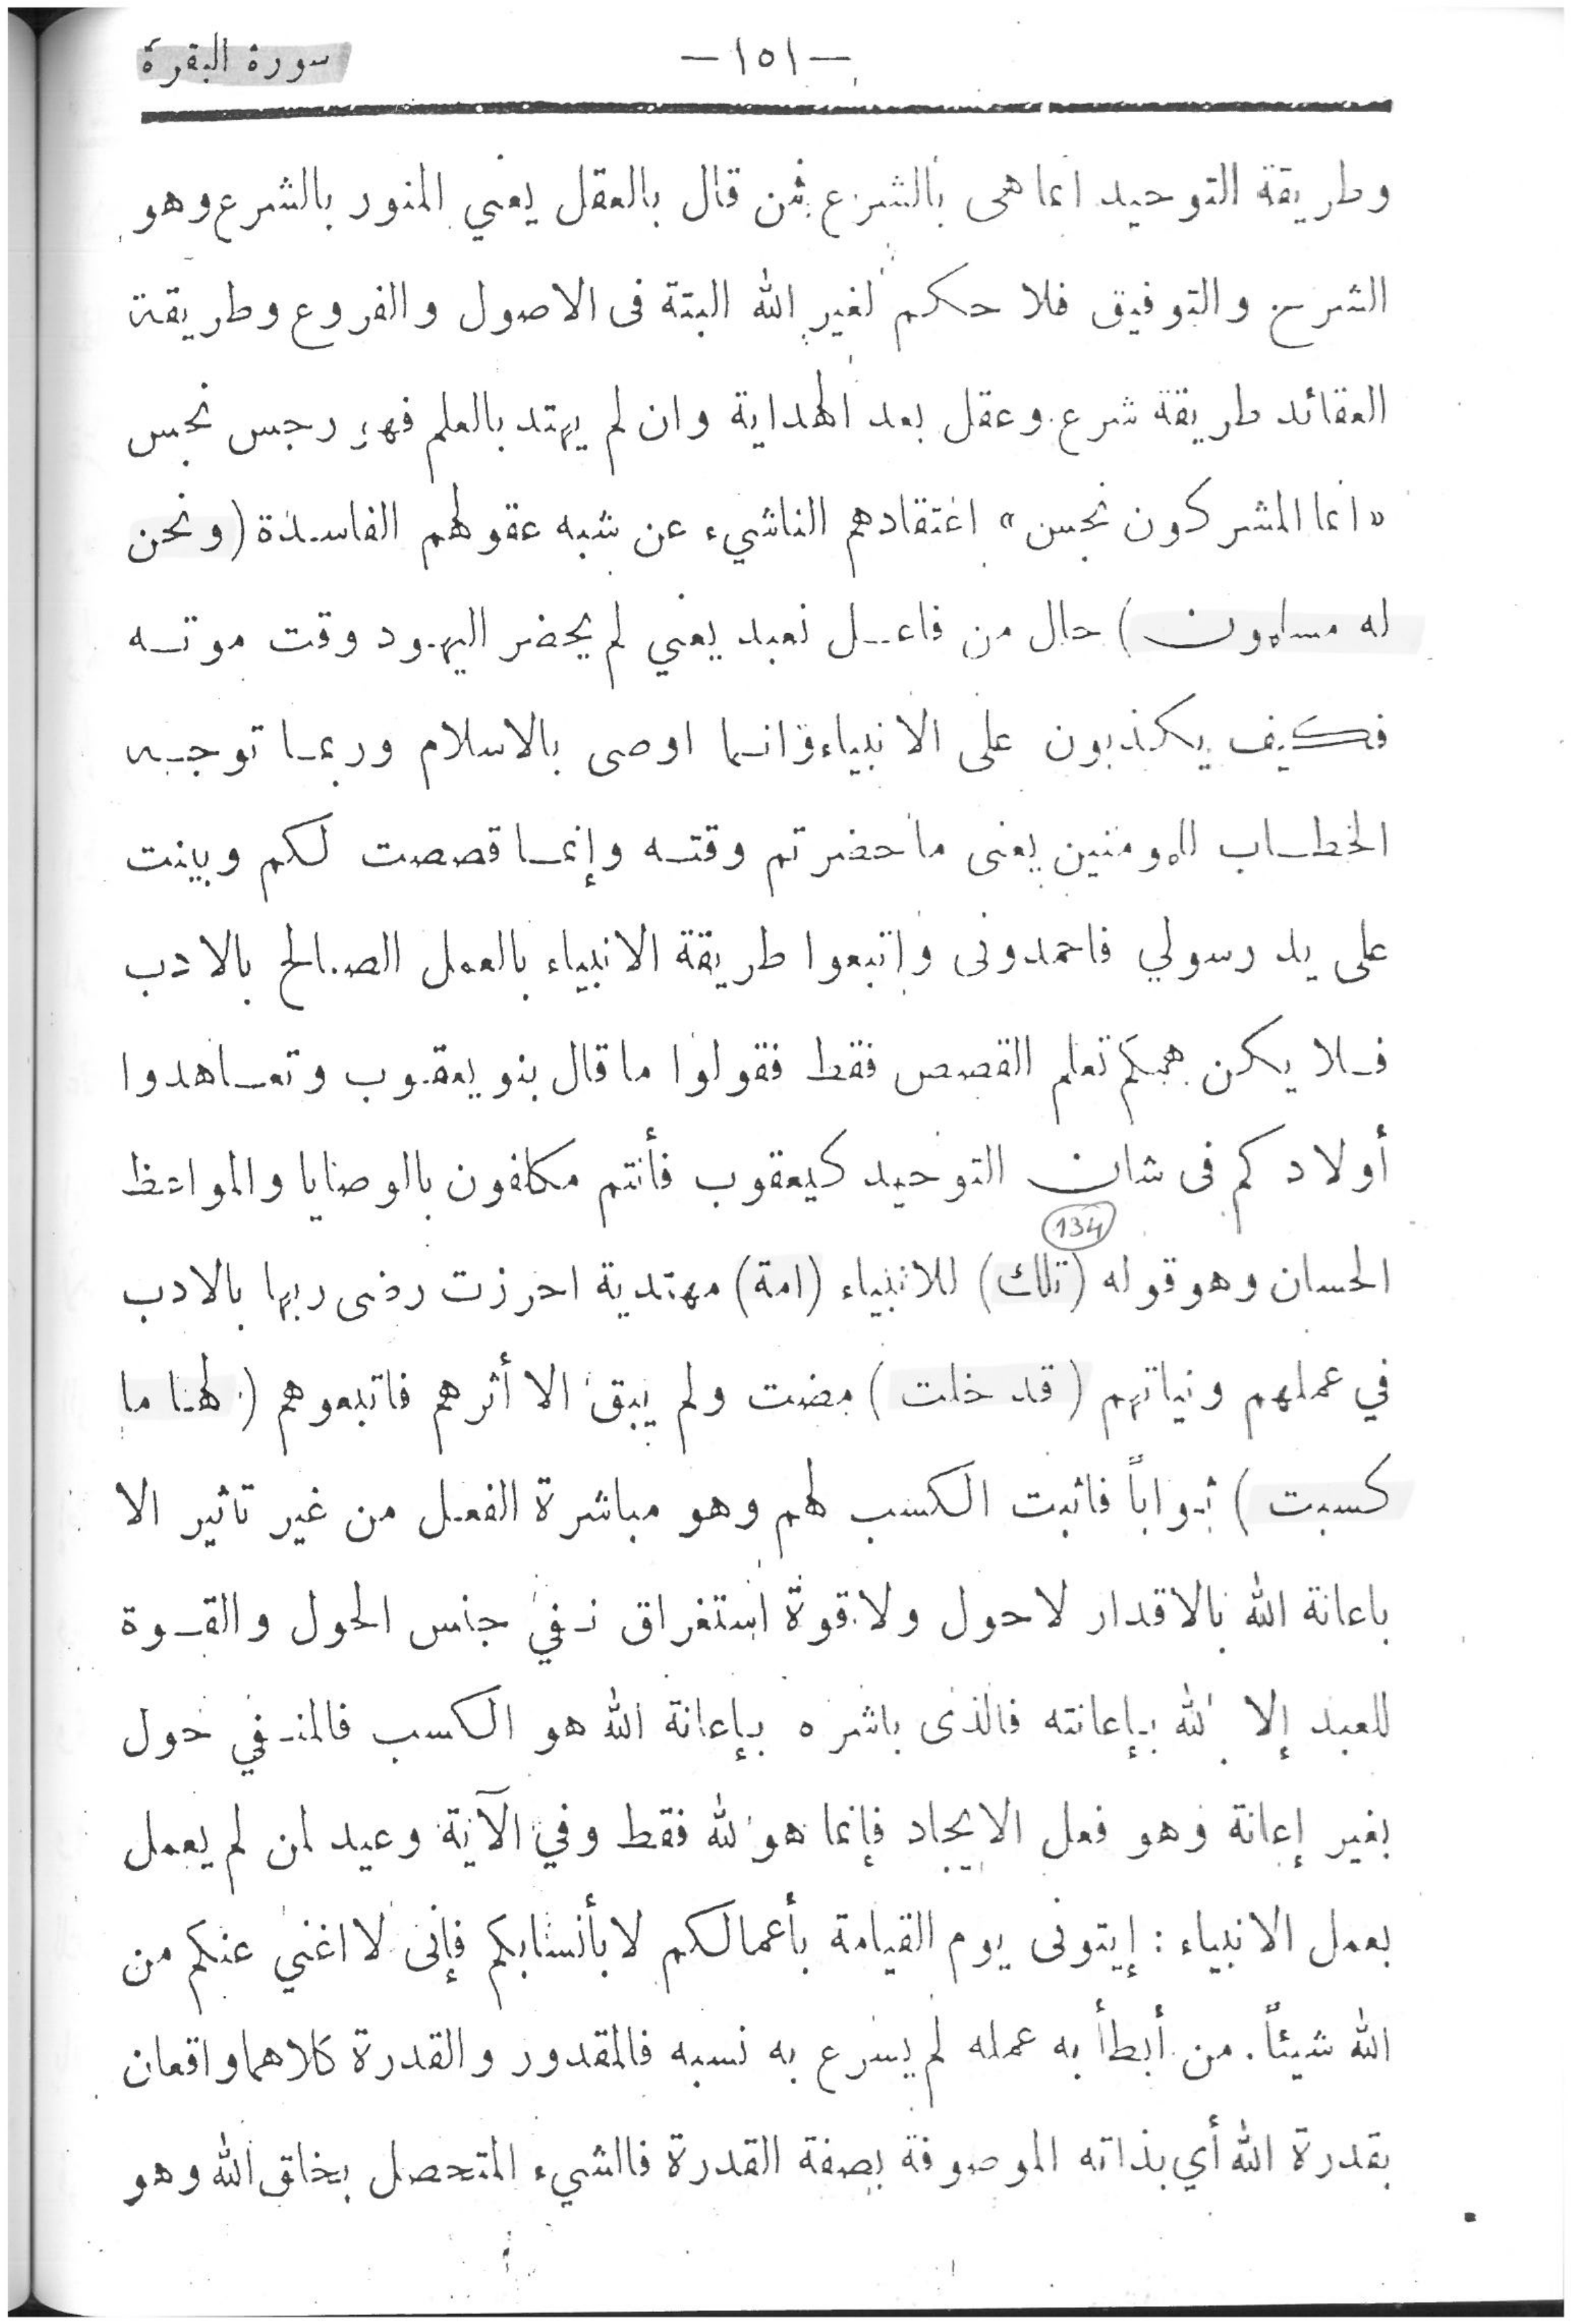 سورة البقرة
— ١٥١ —
وطريقة التوحيد انما هى بالشرع فمن قال بالعقل يعني المنور بالشرع وهو
الشرع والتوفيق فلا حكم لغير الله البتة فى الاصول والفروع وطريقة
العقائد طريقة شرع وعقل بعد الهداية وان لم يهتد بالعلم فهو رجس نجس
«انما المشركون نجس» اعتقادهم الناشيء عن شبه عقولهم الفاسدة (ونحن
له مسلمون) حال من فاعل نعبد يعني لم يحضر اليهود وقت موته
فكيف يكذبون على الانبياء وانما اوصى بالاسلام وربما توجه
الخطاب للمومنين يعنى ما حضرتم وقته وإنما قصصت لكم وبينت
على يد رسولي فاحمدونى واتبعوا طريقة الانبياء بالعمل الصالح بالادب
فلا يكن همكم تعلم القصص فقط فقولوا ما قال بنو يعقوب وتعاهدوا
أولادكم فى شان التوحيد كيعقوب فأنتم مكلفون بالوصايا والمواعظ
134
الحسان وهو قوله (تلك) للانبياء (امة) مهتدية احرزت رضى ربها بالادب
في عملهم ونياتهم (قد خلت) مضت ولم يبق الا أثرهم فاتبعوهم (لها ما
كسبت) ثواباً فاثبت الكسب لهم وهو مباشرة الفعل من غير تاثير الا
باعانة الله بالاقدار لا حول ولا قوة استغراق نفي جنس الحول والقوة
للعبد إلا لله بإعانته فالذى باشره بإعانة الله هو الكسب فالمنفي حول
بغير إعانة وهو فعل الايجاد فإنما هو لله فقط وفي الآية وعيد لمن لم يعمل
بعمل الانبياء : إيتونى يوم القيامة بأعمالكم لا بأنسابكم فإنى لا اغني عنكم من
الله شيئاً . من أبطأ به عمله لم يسرع به نسبه فالمقدور والقدرة كلاهما واقعان
بقدرة الله أي بذاته الموصوفة بصفة القدرة فالشيء المتحصل بخلق الله وهو